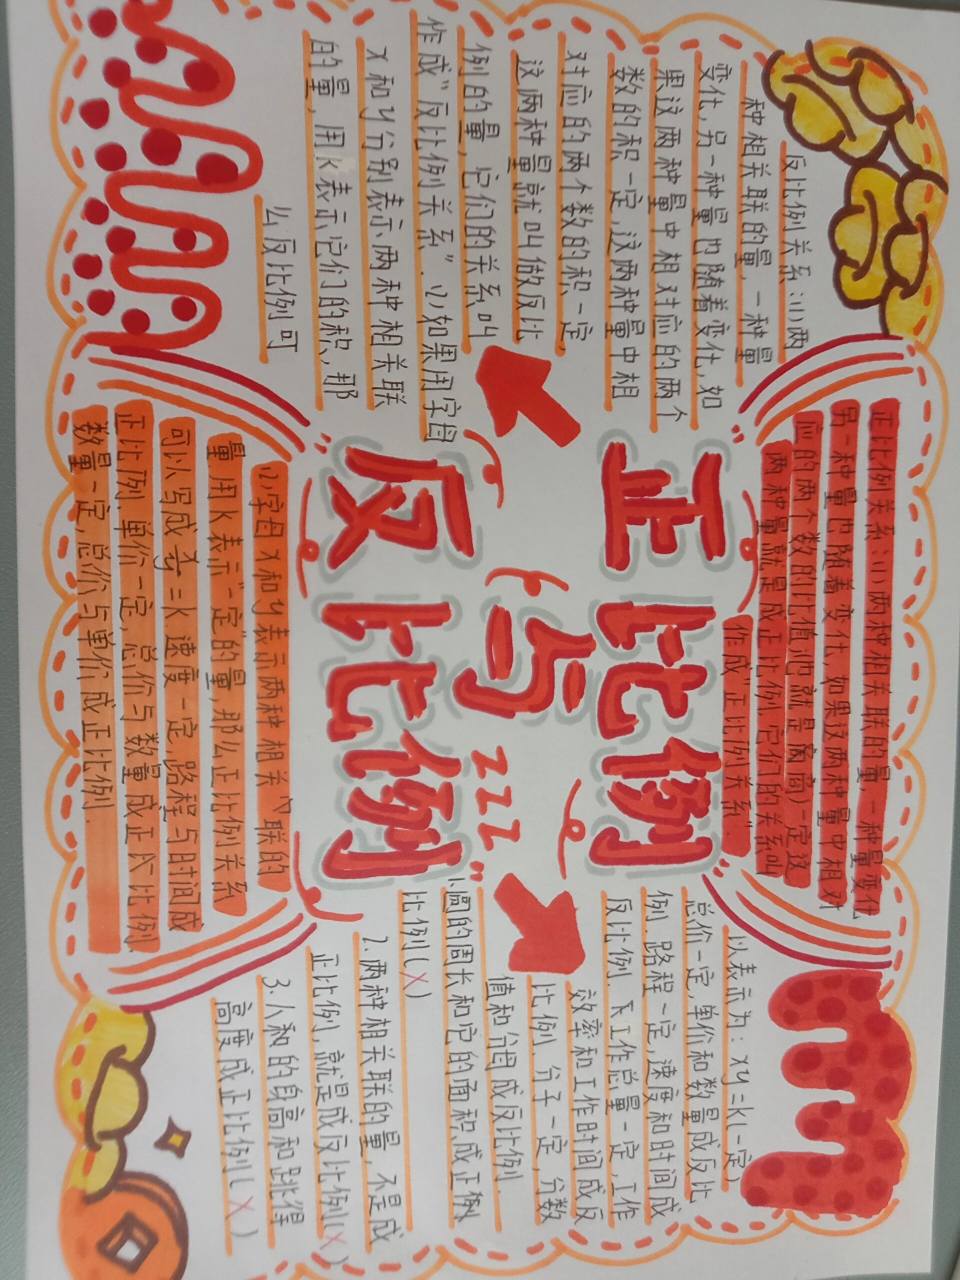 正比例
与
反比例
正比例关系:(1)两种相关联的量,一种量变化
另一种量也随着变化,如果这两种量中相对
应的两个数的比值(也就是商)一定这
两种量就是成正比例它们的关系叫
作成"正比例关系".
(2)字母x和y表示两种相关联的
量用k表示"一定"的量,那么正比例关系
可以写成 =k 速度一定,路程与时间成
正比例.单价一定,总价与数量成正比例.
数量一定,总价与单价成正比例.
反比例关系:(1)两
种相关联的量,一种量
变化,另一种量也随着变化,如
果这两种量中相对应的两个
数的积一定,这两种量中相
对应的两个数的积一定,
这两种量就叫做反比
例的量,它们的关系叫
作成"反比例关系".(2)如果用字母
x和y分别表示两种相关联
的量,用k表示它们的积,那
么反比例可
以表示为:xy=k(一定)
总价一定,单价和数量成反比
例.路程一定,速度和时间成
反比例.工作总量一定,工作
效率和工作时间成反
比例.分子一定,分数
值和分母成反比例.
1.圆的周长和它的面积成正例
比例(X)
2.两种相关联的量,不是成
正比例,就是成反比例(X)
3.小和的身高和跳得
高度成正比例(X)